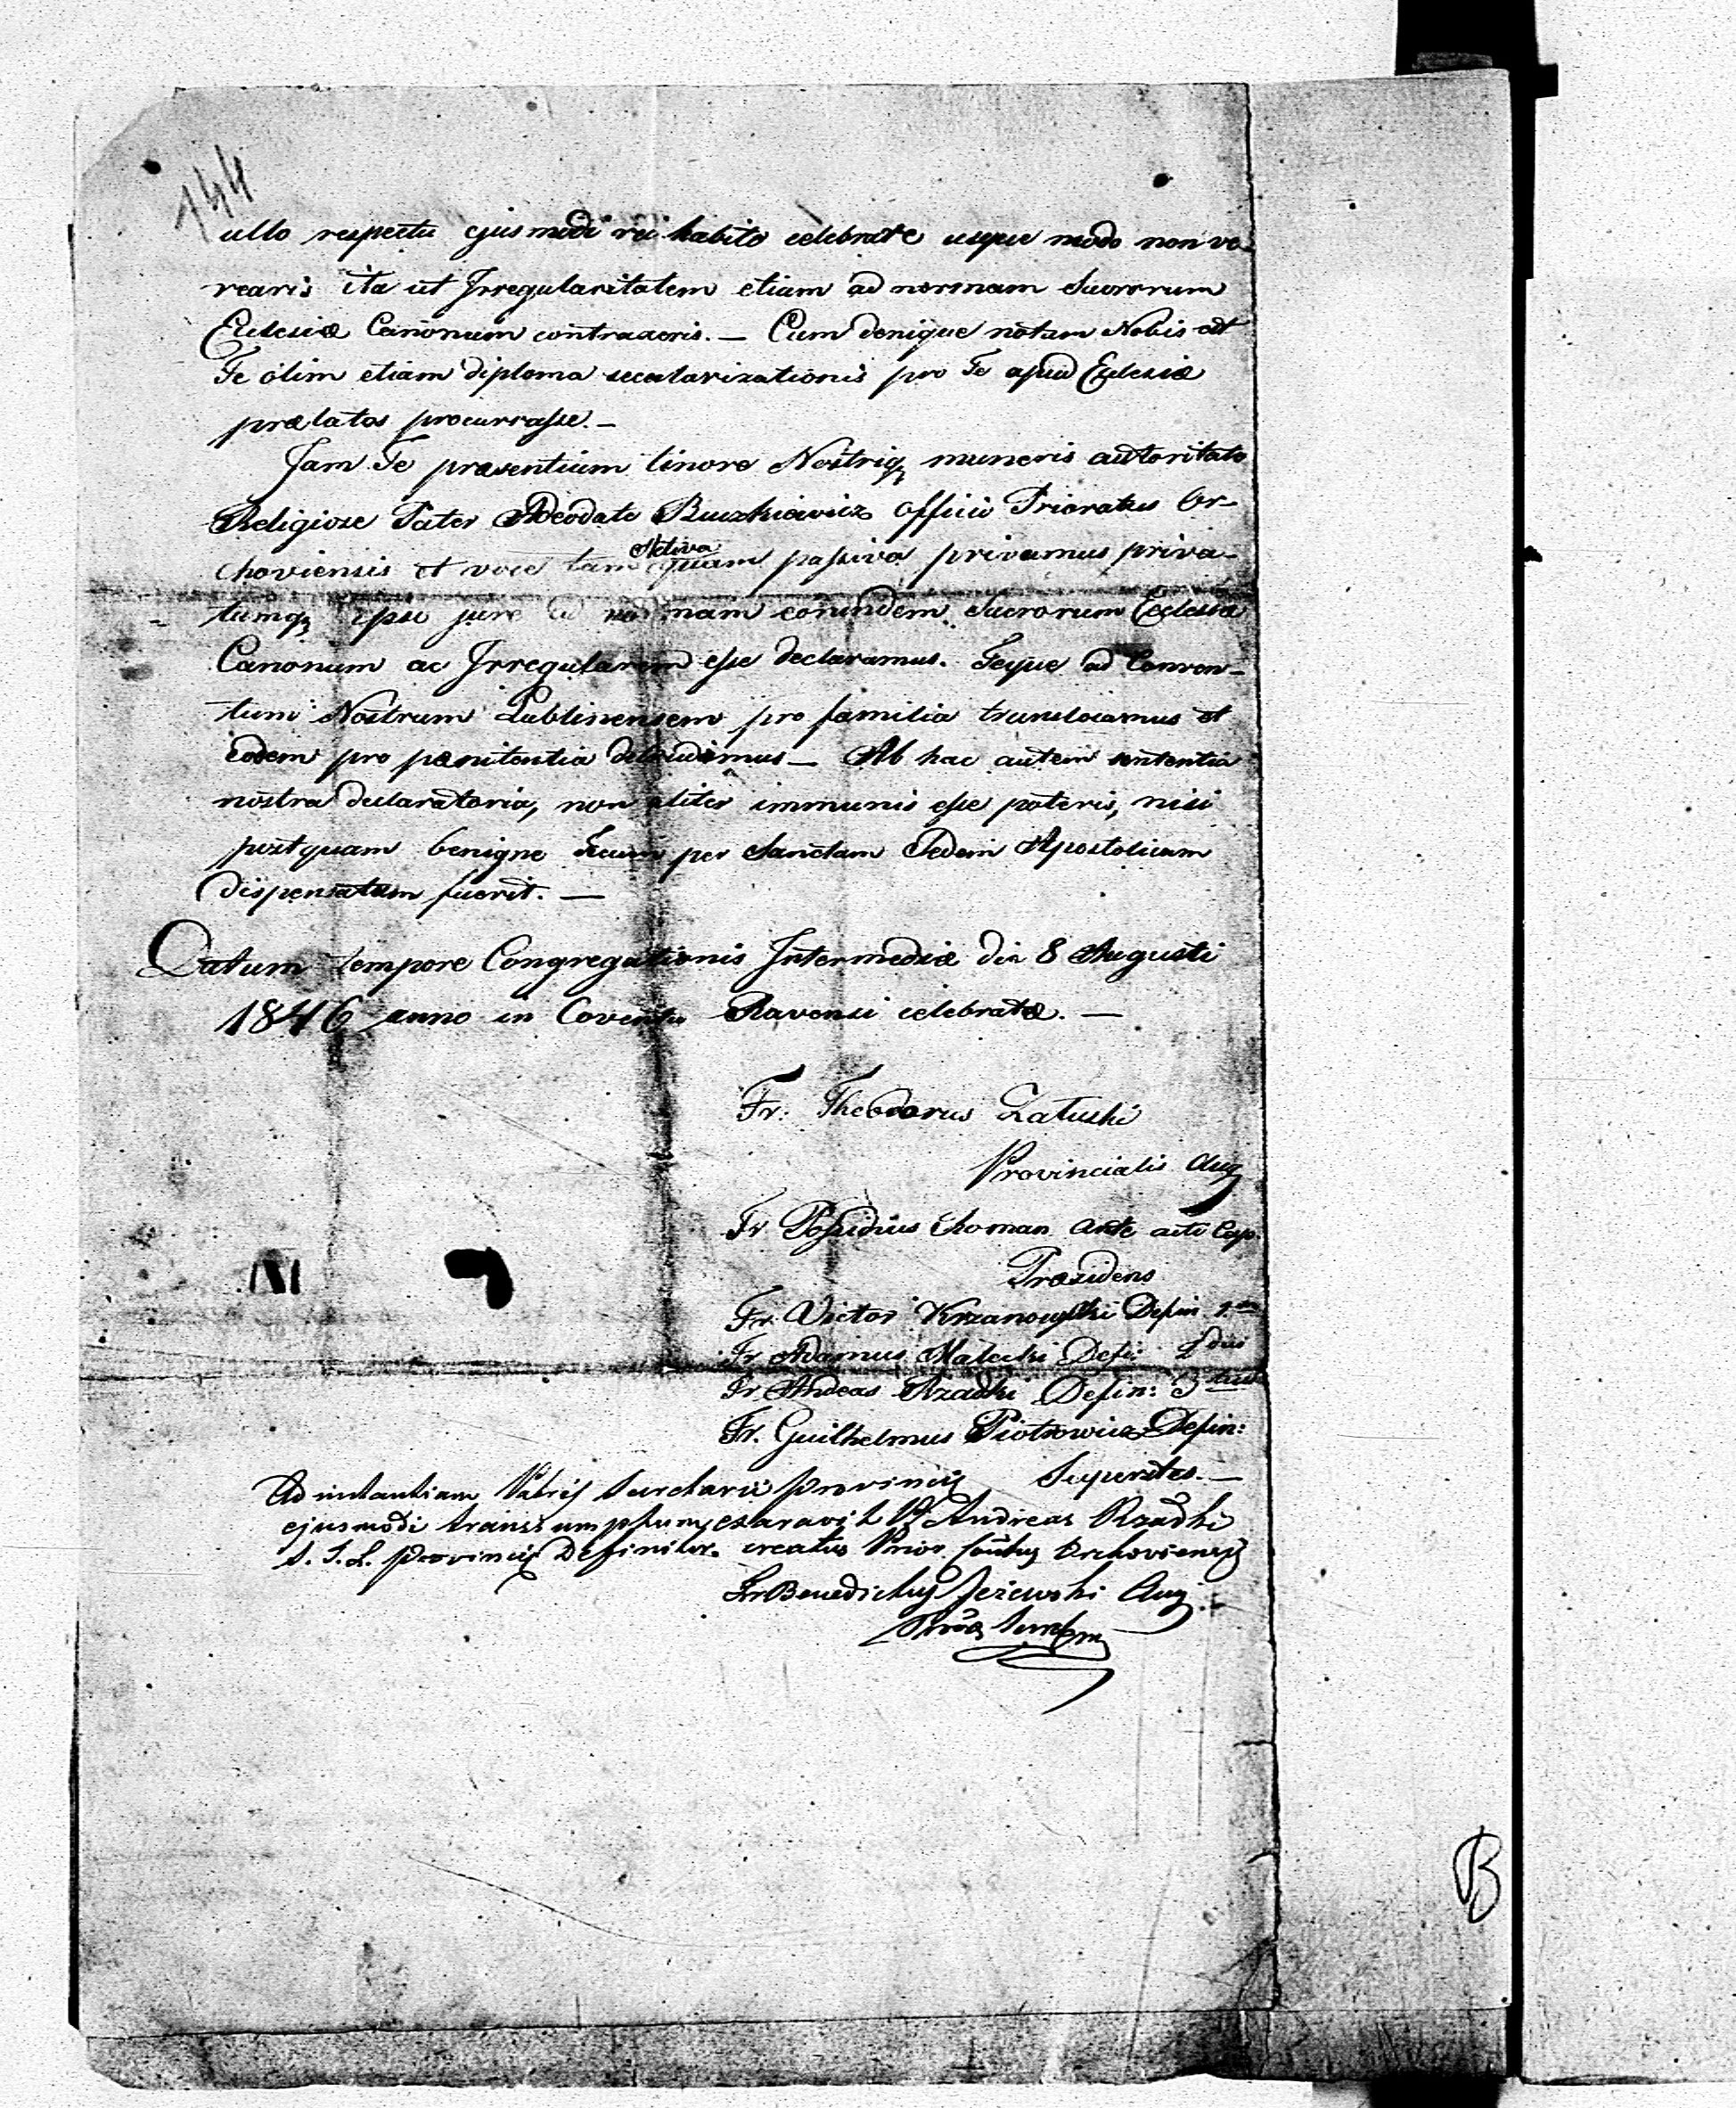 144
ullo respectu ejusmodi rei habito celebrare usque modo non ve-
rearis ita ut Irregularitatem etiam ad normam Sacrorum
Eclesiæ Canonum contraxeris. — Cum denique notum Nobis est
Te olim etiam diploma secularizationis pro Te apud Eclesiæ
prælatos procurrasse. —
Jam Te præsentium tenore Nostriq muneris autoritate
Religiose Pater Adeodate Ruszkiewicz officio Prioratus Or-
Activa
choviensis et voce tam quam passiva privamus, priva-
tumq ipso jure ad normam eorundem Sacrorum Eclesiæ
Canonum ac Irregularem esse declaramus. Teque ad Conven-
tum Nostrum Lublinensem pro familia translocamus et
eodem pro pænitentia detrudimus — Ab hac autem sententia
nostra declaratoria, non aliter immunis esse poteris, nisi
postquam benigne Tecum per Sanctam Sedem Apostolicam
dispensatum fuerit. —
Datum tempore Congregationis Intermediæ die 8 Augusti
1846 anno in Coventu Ravensi celebratæ. —
Fr: Theodorus Zatuski
Provincialis Aug
Fr Possidius Choman Ante acti Cap:
Præsidens
Fr. Victor Krzanowski Defin 1mus
Fr Adamus Malecki Defi: 2dus
Fr Andreas Rzadki Defin: 3tius
Fr. Guilhelmus Piotrowicz Defin:
Superstes. —
Ad instantiam Patris Secretarii Provinciæ
ejusmodi transsumptum exaravit Fr Andreas Rzadki
S. T. L. Provinciæ Definitor creatus Prior Convtus Orchoviensis
Fr Benedictus Jezewski Aug:
B